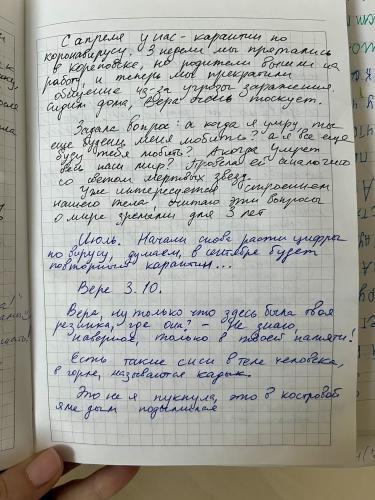 С апреля у нас - карантин по
коронавирусу. 3 недели мы прятались
в Кореновске, но родители вышли на
работу, и теперь мы прекратили
общение из-за угрозы заражения.
Сидим дома, Вера очень тоскует.
Задала вопрос: а когда я умру, ты
еще будешь меня любить? а я все еще
буду тебя любить? А когда умрет
весь наш мир? Провела ей аналогию
со светом мертвых звезд.
Уже интересуется строением
нашего тела, считаю эти вопросы
о мире зрелыми для 3 лет
Июль. Начали снова расти цифры
по вирусу, думаем, в сентябре будет
повторный карантин...
Вере 3.10.
Вера, ну только что здесь была твоя
резинка, где она? - Не знаю,
наверное, только в твоей памяти!
Есть такие сиси в теле человека,
в горле, называются кадык.
Это не я пукнула, это в костровой
яме дым